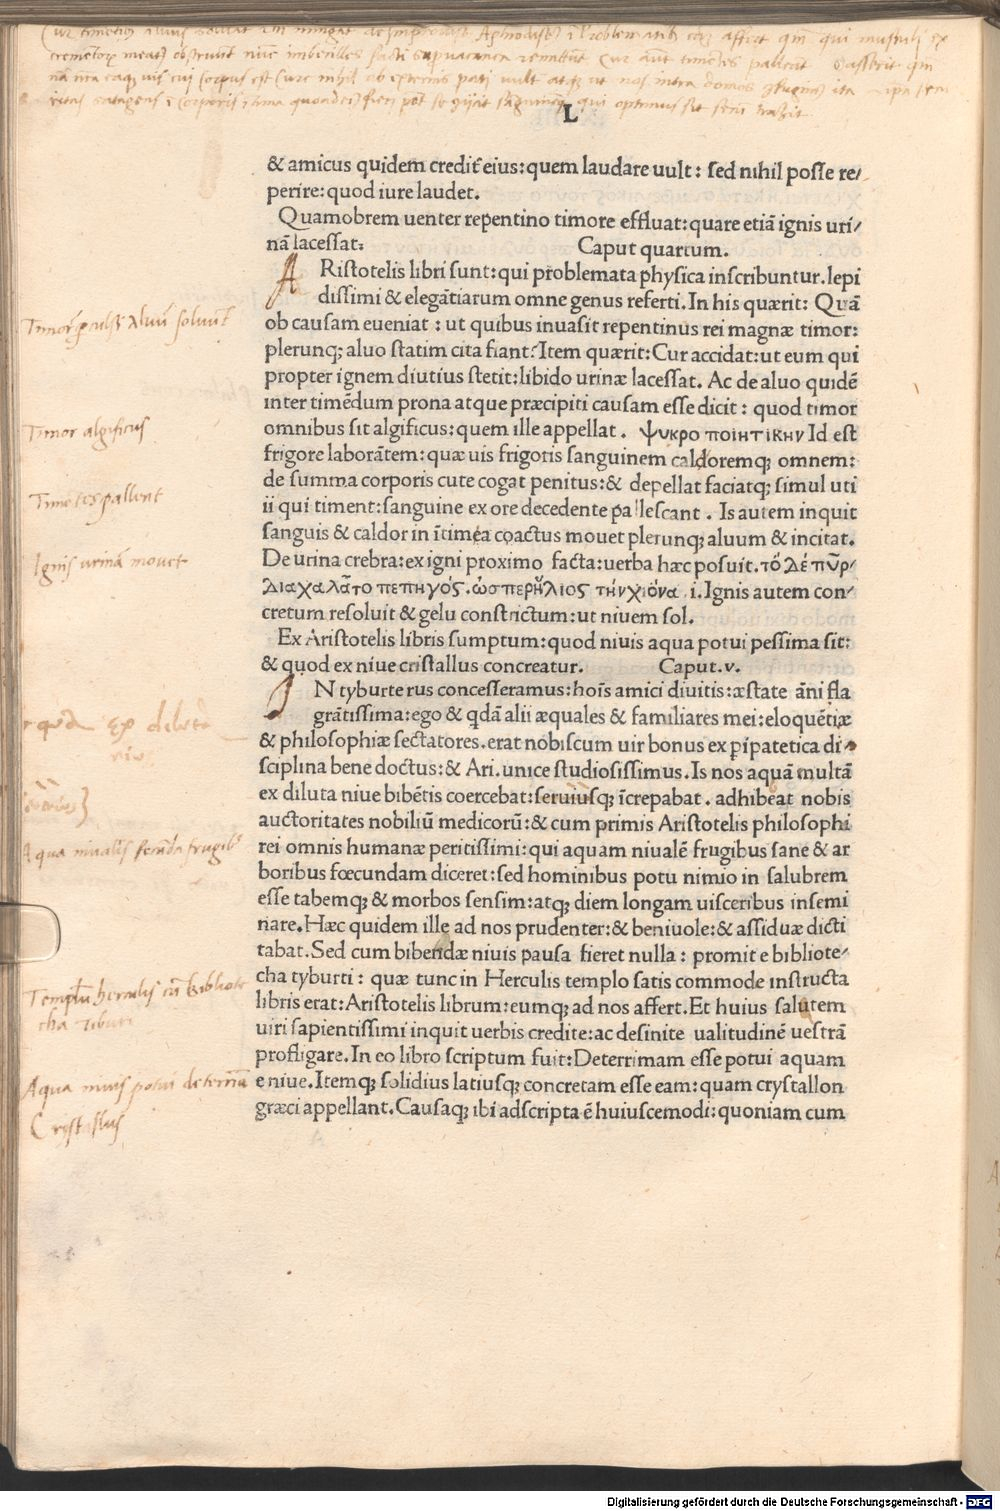 L
& amicus quidem credit̃ eius: quem laudare uult: sed nihil posse re/
perire: quod iure laudet.
Quamobrem uenter repentino timore effluat: quare etiã ignis uri/
nã lacessat: Caput quartum.
ARistotelis libri sunt: qui problemata physica inscribuntur. lepi
dissimi & elegãtiarum omne genus referti. In his quærit: Quã
ob causam eueniat: ut quibus inuasit repentinus rei magnæ timor:
plerunq; aluo statim cita fiant? Item quærit: Cur accidat: ut eum qui
propter ignem diutius stetit: libido urinæ lacessat. Ac de aluo quidẽ
inter timẽdum prona atque præcipiti causam esse dicit: quod timor
omnibus sit algificus: quem ille appellat. ψυκρο ποιητικην Id est
frigore laborãtem: quæ uis frigoris sanguinem caldoremq; omnem:
de summa corporis cute cogat penitus: & depellat faciatq; simul uti
ii qui timent: sanguine ex ore decedente pallescant. Is autem inquit
sanguis & caldor in ĩtimea coactus mouet plerunq; aluum & incitat.
De urina crebra: ex igni proximo facta: uerba hæc posuit. τὸ δέ πῦρ/
διαχαλᾶτο πεπηγός. ὡσπερ ἥλιος τήν χιόνα .i. Ignis autem con/
cretum resoluit & gelu constrictum: ut niuem sol.
Ex Aristotelis libris sumptum: quod niuis aqua potui pessima sit:
& quod ex niue cristallus concreatur. Caput. v.
IN tyburte rus concesseramus: hoĩs amici diuitis: æstate ãni fla
grãtissima: ego & qdã alii æquales & familiares mei: eloquẽtiæ
& philosophiæ sectatores. erat nobiscum uir bonus ex pipatetica di
sciplina bene doctus: & Ari. unice studiosissimus. Is nos aquã multã
ex diluta niue bibẽtis coercebat: seruiusq; ĩcrepabat. adhibeat nobis
auctoritates nobiliũ medicorũ: & cum primis Aristotelis philosophi
rei omnis humanæ peritissimi: qui aquam niualẽ frugibus sane & ar
boribus fœcundam diceret: sed hominibus potu nimio in salubrem
esse tabemq; & morbos sensim: atq; diem longam uisceribus insemi
nare. Hæc quidem ille ad nos prudenter: & beniuole: & assiduæ dicti
tabat. Sed cum bibendæ niuis pausa fieret nulla: promit e bibliote/
cha tyburti: quæ tunc in Herculis templo satis commode instructa
libris erat: Aristotelis librum: eumq; ad nos affert. Et huius salutem
uiri sapientissimi inquit uerbis credite: ac desinite ualitudinẽ uestrã
profligare. In eo libro scriptum fuit: Deterrimam esse potui aquam
e niue. Itemq; solidius latiusq; concretam esse eam: quam crystallon
græci appellant. Causaq; ibi adscripta ẽ huiuscemodi: quoniam cum
Timor algificus
Timẽtes pallent
Ignis urinã mouet
Aqua niualis
Templũ herculis cũ bibliote
cha Tiburi
Aqua niuis potui deterrima
Crystallus
Digitalisierung gefördert durch die Deutsche Forschungsgemeinschaft - DFG